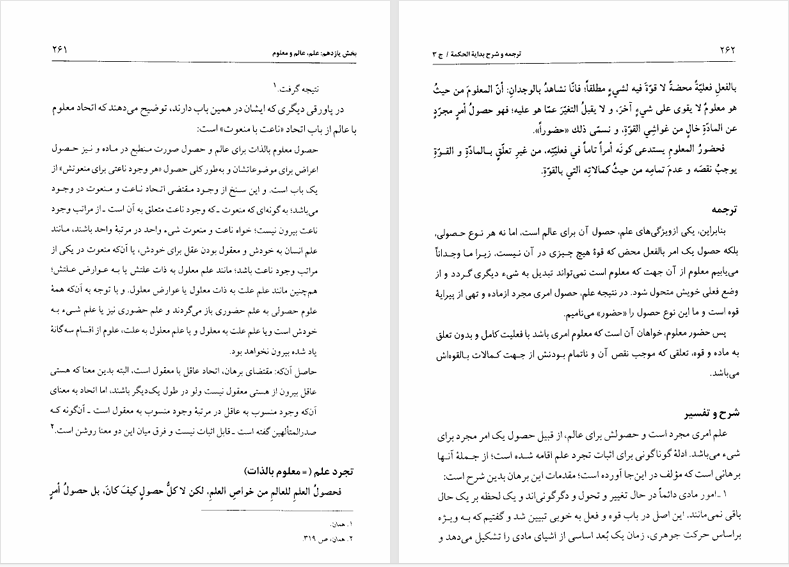 بخش یازدهم: علم، عالم و معلوم
۲۶۱
نتیجه گرفت.۱
در پاورقی دیگری که ایشان در همین باب دارند، توضیح می‌دهند که اتحاد معلوم
با عالم از باب اتحاد «ناعت با منعوت» است:
حصول معلوم بالذات برای عالم و حصول صورت منطبع در ماده و نیز حصول
اعراض برای موضوعاتشان و به‌طور کلی حصول «هر وجود ناعتی برای منعوتش» از
یک باب است. و این سنخ از وجود مقتضی اتحاد ناعت و منعوت در وجود
می‌باشد؛ به‌گونه‌ای که منعوت ـ که وجود ناعت متعلق به آن است ـ از مراتب وجود
ناعت بیرون نیست؛ خواه ناعت و منعوت شیء واحد در مرتبهٔ واحد باشند، مانند
علم انسان به خودش و معقول بودن عقل برای خودش، یا آن‌که منعوت در یکی از
مراتب وجود ناعت باشد؛ مانند علم معلول به ذات علتش یا به عوارض علتش؛
هم‌چنین مانند علم علت به ذات معلول یا عوارض معلول. و با توجه به آن‌که همهٔ
علوم حصولی به علم حضوری باز می‌گردند و علم حضوری نیز یا علم شیء به
خودش است و یا علم علت به معلول و یا علم معلول به علت، علوم از اقسام سه‌گانهٔ
یاد شده بیرون نخواهد بود.
حاصل آن‌که: مقتضای برهان، اتحاد عاقل با معقول است، البته بدین معنا که هستی
عاقل بیرون از هستی معقول نیست ولو در طول یک‌دیگر باشند، اما اتحاد به معنای
آن‌که وجود منسوب به عاقل در مرتبهٔ وجود منسوب به معقول است ـ آن‌گونه که
صدرالمتألهین گفته است ـ قابل اثبات نیست و فرق میان این دو معنا روشن است.۲
تجرد علم (= معلوم بالذات)
فحصولُ العلمِ للعالمِ من خواصِ العلمِ، لكن لا كلُّ حصولٍ كيفَ كانَ، بل حصولُ أمرٍ
۱. همان.
۲. همان، ص ۳۱۹.
۲۶۲
ترجمه و شرح بدایة الحکمة / ج ۳
بالفعلِ فعليّةً محضةً لا قوّةَ فيه لشيءٍ مطلقاً؛ فانّا نشاهدُ بالوجدانِ: أنّ المعلومَ من حيثُ
هو معلومٌ لا يقوى على شيءٍ آخرَ، و لا يقبلُ التغيّرَ عمّا هو عليه؛ فهو حصولُ أمرٍ مجرّدٍ
عن المادّةِ خالٍ من غواشي القوّةِ، و نسمّي ذلك «حضوراً».
فحضورُ المعلومِ يستدعى كونَه أمراً تاماً في فعليّتِه، من غيرِ تعلّقٍ بالمادّةِ و القوّةِ
يوجبُ نقصَه و عدمَ تمامِه من حيثُ كمالاتِه التي بالقوّةِ.
ترجمه
بنابراین، یکی ازویژگی‌های علم، حصول آن برای عالم است، اما نه هر نوع حصولی،
بلکه حصول یک امر بالفعل محض که قوهٔ هیچ چیزی در آن نیست، زیرا ما وجداناً
می‌یابیم معلوم از آن جهت که معلوم است نمی‌تواند تبدیل به شیء دیگری گردد و از
وضع فعلی خویش متحول شود. در نتیجه علم، حصول امری مجرد ازماده و تهی از پیرایهٔ
قوه است و ما این نوع حصول را «حضور» می‌نامیم.
پس حضور معلوم، خواهان آن است که معلوم امری باشد با فعلیت کامل و بدون تعلق
به ماده و قوه، تعلقی که موجب نقص آن و ناتمام بودنش از جهت کمالات بالقوه‌اش
می‌باشد.
شرح و تفسیر
علم امری مجرد است و حصولش برای عالم، از قبیل حصول یک امر مجرد برای
شیء می‌باشد. ادلهٔ گوناگونی برای اثبات تجرد علم اقامه شده است؛ از جملهٔ آنها
برهانی است که مؤلف در این‌جا آورده است؛ مقدمات این برهان بدین شرح است:
۱ـ امور مادی دائماً در حال تغییر و تحول و دگرگونی‌اند و یک لحظه بر یک حال
باقی نمی‌مانند. این اصل در باب قوه و فعل به خوبی تبیین شد و گفتیم که به ویژه
براساس حرکت جوهری، زمان یک بُعد اساسی از اشیای مادی را تشکیل می‌دهد و